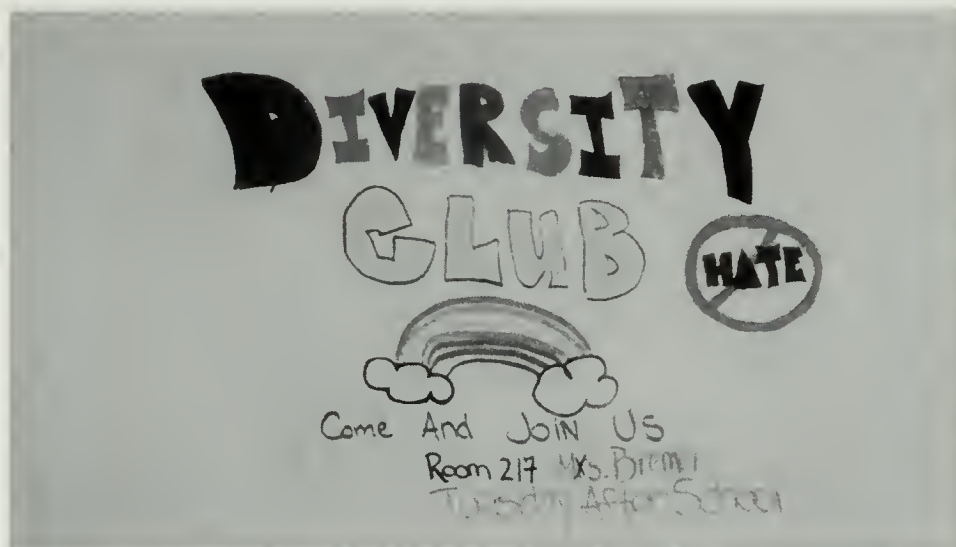 DIVERSITY
CLUB
HATE
Come And JOIN US
Room 217
Tuesday After School